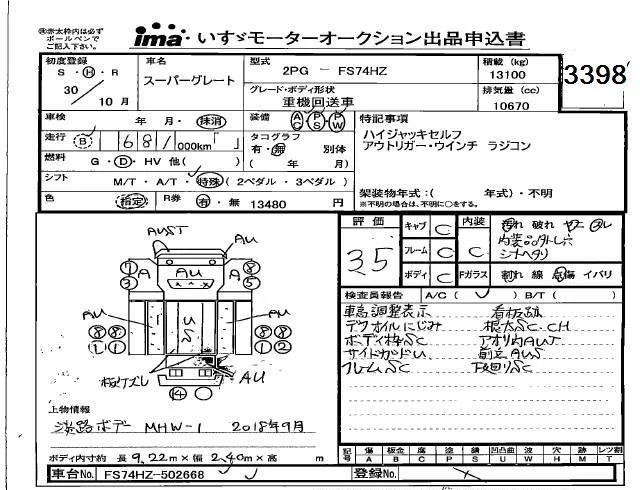 ※赤太枠内は必ず
ボールペンで
ご記入下さい。
ima いすゞモーターオークション出品申込書
初度登録 車名 型式 2PG － FS74HZ 積載 (kg) 13100
3398
S・H・R スーパーグレート グレード・ボディ形状 排気量 (cc)
30/10月 重機回送車 10670
車検 年・月・抹消 装備 AC PS PW 特記事項
走行 B 681 000km タコグラフ ハイジャッキセルフ
有・無 別体 アウトリガー・ウインチ ラジコン
燃料 G・D・HV 他( ) ( 年 月)
シフト M/T・A/T・特殊(2ペダル・3ペダル) 架装物年式:( 年式)・不明
※不明の場合は、不明に○をする。
色 指定 R券 有・無 13480 円
評価 35
キャブ C 内装 C
フレーム C
ボディ C Fガラス 割れ 線 点傷 イバリ
汚れ 破れ ヤニ スレ
シートヘタリ
検査員報告 A/C( ) B/T( )
車高調整表示 看板跡
デフオイルにじみ 根太SC.CH
ボディ枠SC アオリ内AUT
サイドガードU 前立AUS
フレームSC 下廻りSC
AUST
AU
AU
A A
AU AU
U
AU
上物情報
淡路ボデー MHW-1 2018年9月
ボディ内寸約 長 9.22m×幅 2.40m×高 m
記号 傷A 板金B 腐C 塗P 錆S 凹凸曲U 波W 穴H 跡M レツ割T
車台No. FS74HZ-502668 登録No.